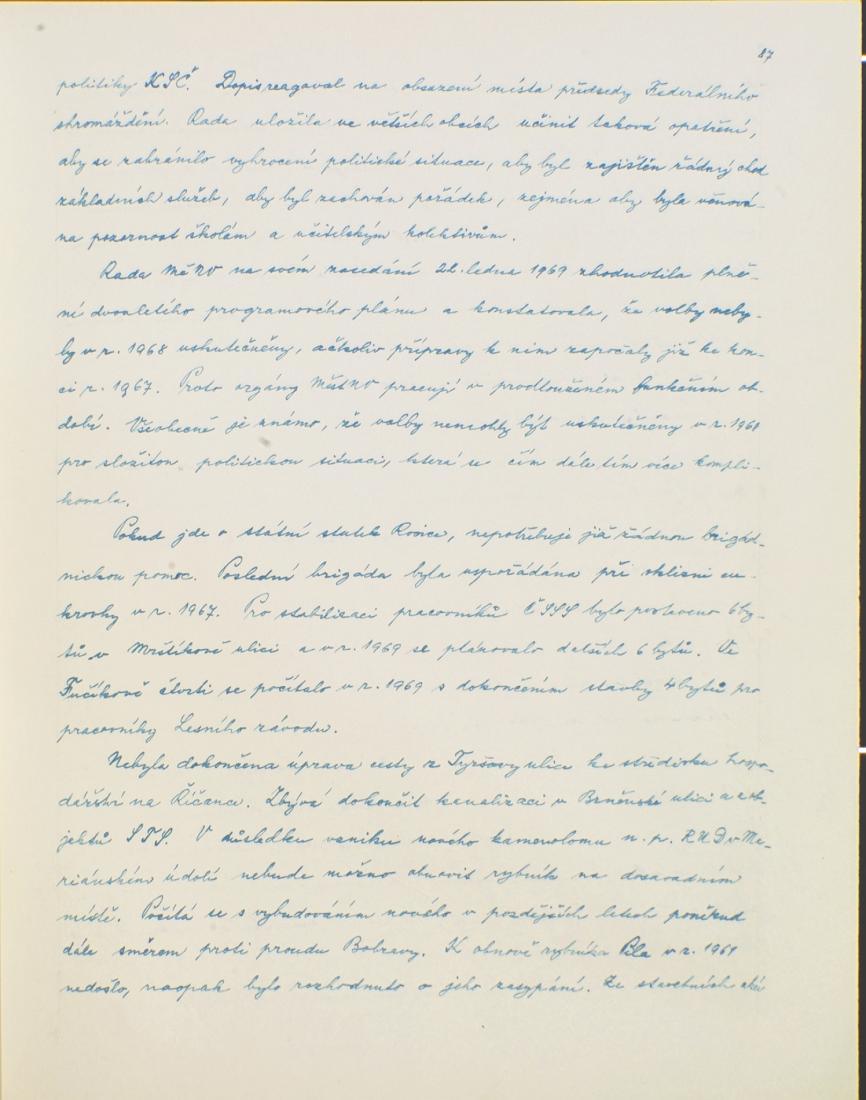 87
politiky KSČ". Dopis reagoval na obsazení místa předsedy Federálního
shromáždění. Rada uložila ve větších obcích učinit taková opatření,
aby se zabránilo vyhrocení politické situace, aby byl zajištěn řádný chod
základních služeb, aby byl zachován pořádek, zejména aby byla věnová-
na pozornost školám a učitelským kolektivům.
Rada MěNV na svém zasedání 22. ledna 1969 zhodnotila plně-
ní dvouletého programového plánu a konstatovala, že volby neby-
ly v r. 1968 uskutečněny, ačkoliv přípravy k nim započaly již ke kon-
ci r. 1967. Proto orgány MěstNV pracují v prodlouženém funkčním ob-
dobí. Všeobecně je známo, že volby nemohly být uskutečněny v r. 1968
pro složitou politickou situaci, která se čím dále tím více kompli-
kovala.
Pokud jde o státní statek Rosice, nepotřebuje již žádnou brigád-
nickou pomoc. Poslední brigáda byla uspořádána při sklizni cu-
krovky v r. 1967. Pro stabilizaci pracovníků ČSSS bylo postaveno 6 by-
tů v Mrštíkově ulici a v r. 1969 se plánovalo dalších 6 bytů. Ve
Fučíkově čtvrti se počítalo v r. 1969 s dokončením stavby 4 bytů pro
pracovníky Lesního závodu.
Nebyla dokončena úprava cesty z Tyršovy ulice ke středisku hospo-
dářství na Říčance. Zbývá dokončit kanalizaci v Brněnské ulici a z ob-
jektů STS. V důsledku vzniku nového kamenolomu n. p. RUD v Ma-
riánském údolí nebude možno obnovit rybník na dosavadním
místě. Počítá se s vybudováním nového v pozdějších letech poněkud
dále směrem proti proudu Bobravy. K obnově rybníka Pila v r. 1969
nedošlo, naopak bylo rozhodnuto o jeho zasypání. Ze stavebních akcí